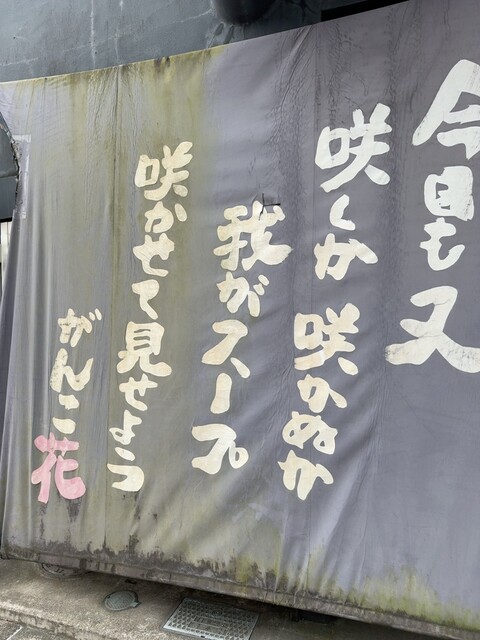 今日も又
咲くか 咲かぬか
我がスープ
咲かせて見せよう
がんこ花